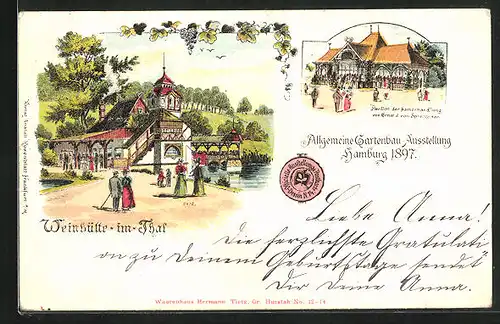 Allgemeine Gartenbau-Ausstellung
Hamburg 1897.
Weinhütte-im-Thal
Liebe Anna!
Die herzlichste Gratulati
on zu Deinem Geburtstage sendet
Dir Deine Anna.
Waarenhaus Hermann Tietz, Gr. Burstah No. 12-14